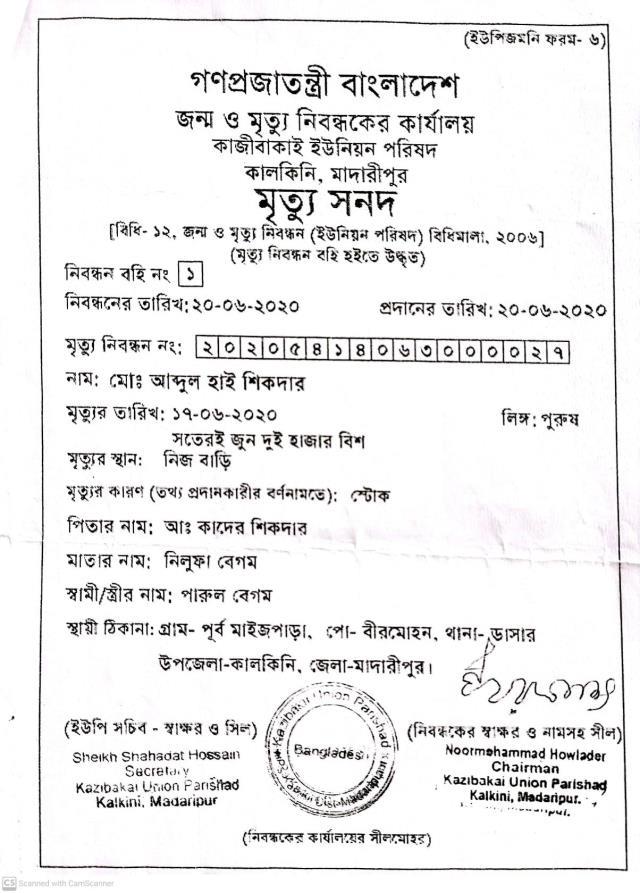 (ইউপিজমনি ফরম- ৬)
গণপ্রজাতন্ত্রী বাংলাদেশ
জন্ম ও মৃত্যু নিবন্ধকের কার্যালয়
কাজীবাকাই ইউনিয়ন পরিষদ
কালকিনি, মাদারীপুর
মৃত্যু সনদ
[বিধি- ১২, জন্ম ও মৃত্যু নিবন্ধন (ইউনিয়ন পরিষদ) বিধিমালা, ২০০৬]
(মৃত্যু নিবন্ধন বহি হইতে উদ্ধৃত)
নিবন্ধন বহি নং ১
নিবন্ধনের তারিখ: ২০-০৬-২০২০ প্রদানের তারিখ: ২০-০৬-২০২০
মৃত্যু নিবন্ধন নং: ২০২০৫৪১৪০৬৩০০০০২৭
নাম: মোঃ আব্দুল হাই শিকদার
মৃত্যুর তারিখ: ১৭-০৬-২০২০ লিঙ্গ: পুরুষ
সতেরই জুন দুই হাজার বিশ
মৃত্যুর স্থান: নিজ বাড়ি
মৃত্যুর কারণ (তথ্য প্রদানকারীর বর্ণনামতে): স্টোক
পিতার নাম: আঃ কাদের শিকদার
মাতার নাম: নিলুফা বেগম
স্বামী/স্ত্রীর নাম: পারুল বেগম
স্থায়ী ঠিকানা: গ্রাম- পূর্ব মাইজপাড়া, পো- বীরমোহন, থানা- ডাসার
উপজেলা-কালকিনি, জেলা-মাদারীপুর।
(ইউপি সচিব - স্বাক্ষর ও সিল)
Sheikh Shahadat Hossain
Secretary
Kazibakai Union Parishad
Kalkini, Madaripur
Kazibakai Union Parishad
Bangladesh
(নিবন্ধকের স্বাক্ষর ও নামসহ সীল)
Noormohammad Howlader
Chairman
Kazibakai Union Parishad
Kalkini, Madaripur.
(নিবন্ধকের কার্যালয়ের সীলমোহর)
CS Scanned with CamScanner